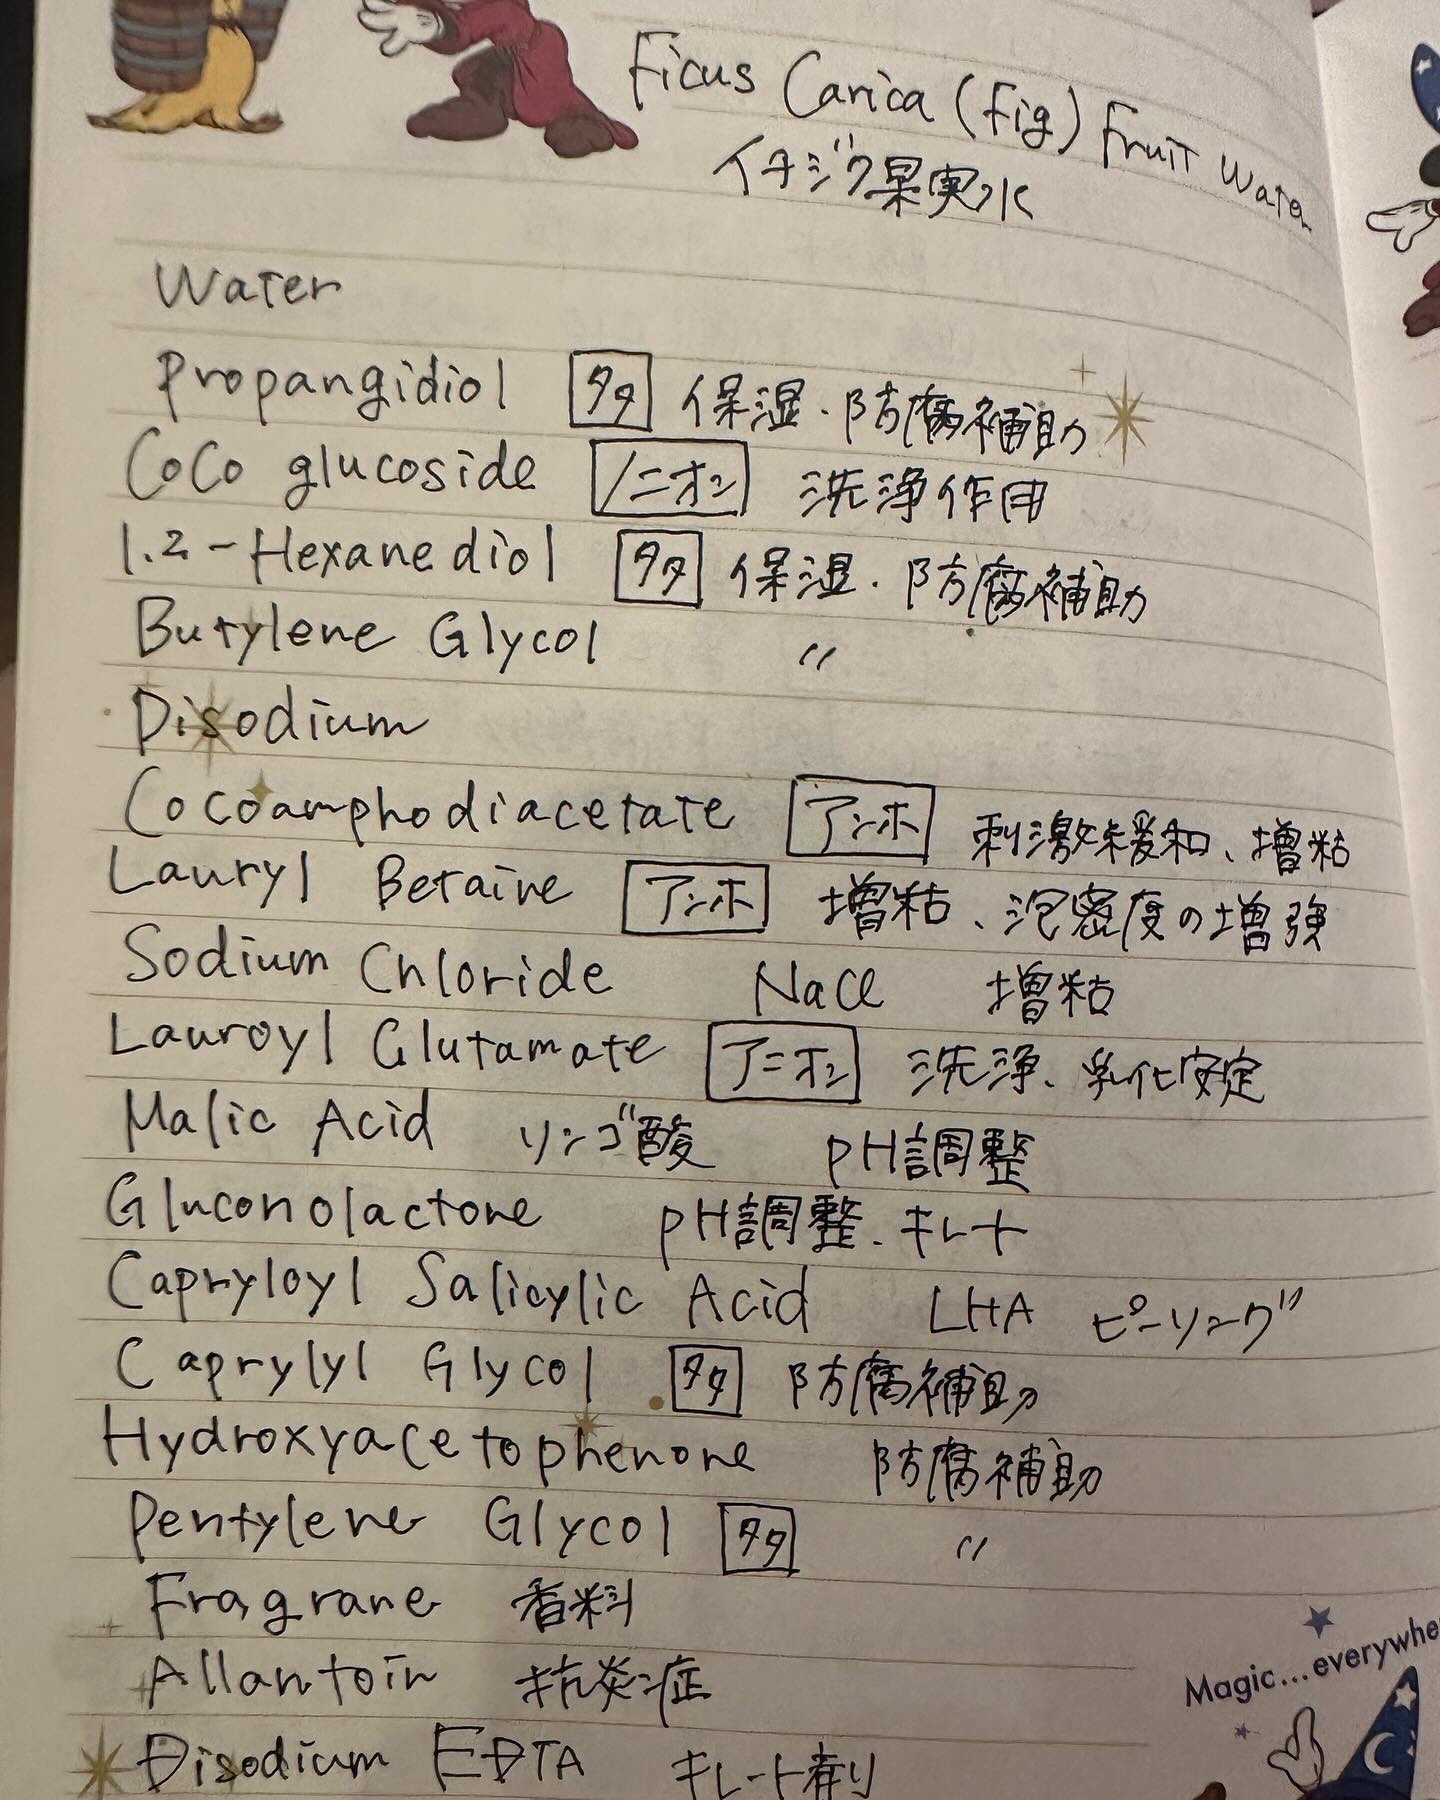 Ficus Carica (Fig) Fruit Water
イチジク果実水
Water
Propangidiol 多 保湿・防腐補助
CoCo glucoside ノニオン 洗浄作用
1.2-Hexanediol 多 保湿・防腐補助
Butylene Glycol 〃
Disodium
Cocoamphodiacetate アンホ 刺激緩和、増粘
Lauryl Betaine アンホ 増粘、泡密度の増強
Sodium Chloride NaCl 増粘
Lauroyl Glutamate アニオン 洗浄、乳化安定
Malic Acid リンゴ酸 pH調整
Gluconolactone pH調整、キレート
Capryloyl Salicylic Acid LHA ピーリング
Caprylyl Glycol 多 防腐補助
Hydroxyacetophenone 防腐補助
Pentylene Glycol 多 〃
Fragrane 香料
Allantoin 抗炎症
Disodium EDTA キレート剤
Magic...everywhe